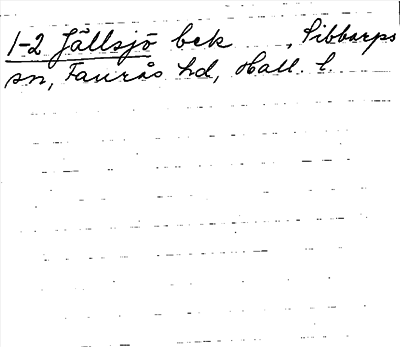 1-2 Jällsjö bek , Sibbarps
sn, Faurås hd, Hall. l.